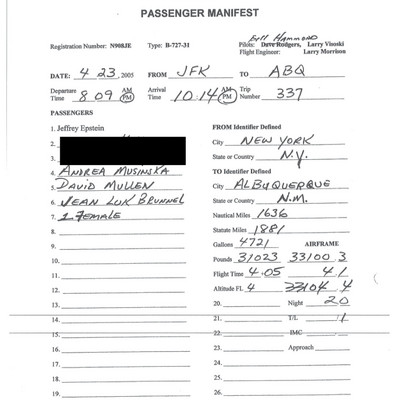 PASSENGER MANIFEST
Bill Hammond
Registration Number: N908JE Type: B-727-31 Pilots: Dave Rodgers, Larry Visoski
Flight Engineer: Larry Morrison
DATE: 4 23, 2005 FROM JFK TO ABQ
Departure Time 8 09 AM PM Arrival Time 10:14 AM PM Trip Number 337
PASSENGERS
1. Jeffrey Epstein FROM Identifier Defined
2. City NEW YORK
3. State or Country N.Y.
4. ANDREA MUSINSKA TO Identifier Defined
5. DAVID MULLEN City ALBUQUERQUE
6. JEAN LUK BRUNNEL State or Country N.M.
7. 1 FEMALE Nautical Miles 1636
8. Statute Miles 1881
9. Gallons 4721 AIRFRAME
10. Pounds 31023 33100 3
11. Flight Time 4.05 4 1
12. Altitude FL 4 33104 4
13. 20. Night 20
14. 21. T/L 1
15. 22. IMC
16. 23. Approach
17. 24.
18. 25.
19. 26.